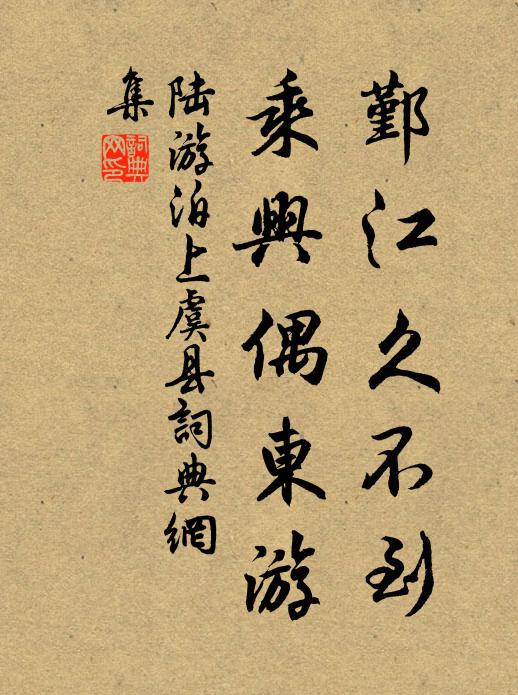 鄞江久不到
乘興偶東游
陆游泊上虞县詞典網
集
詞典網印